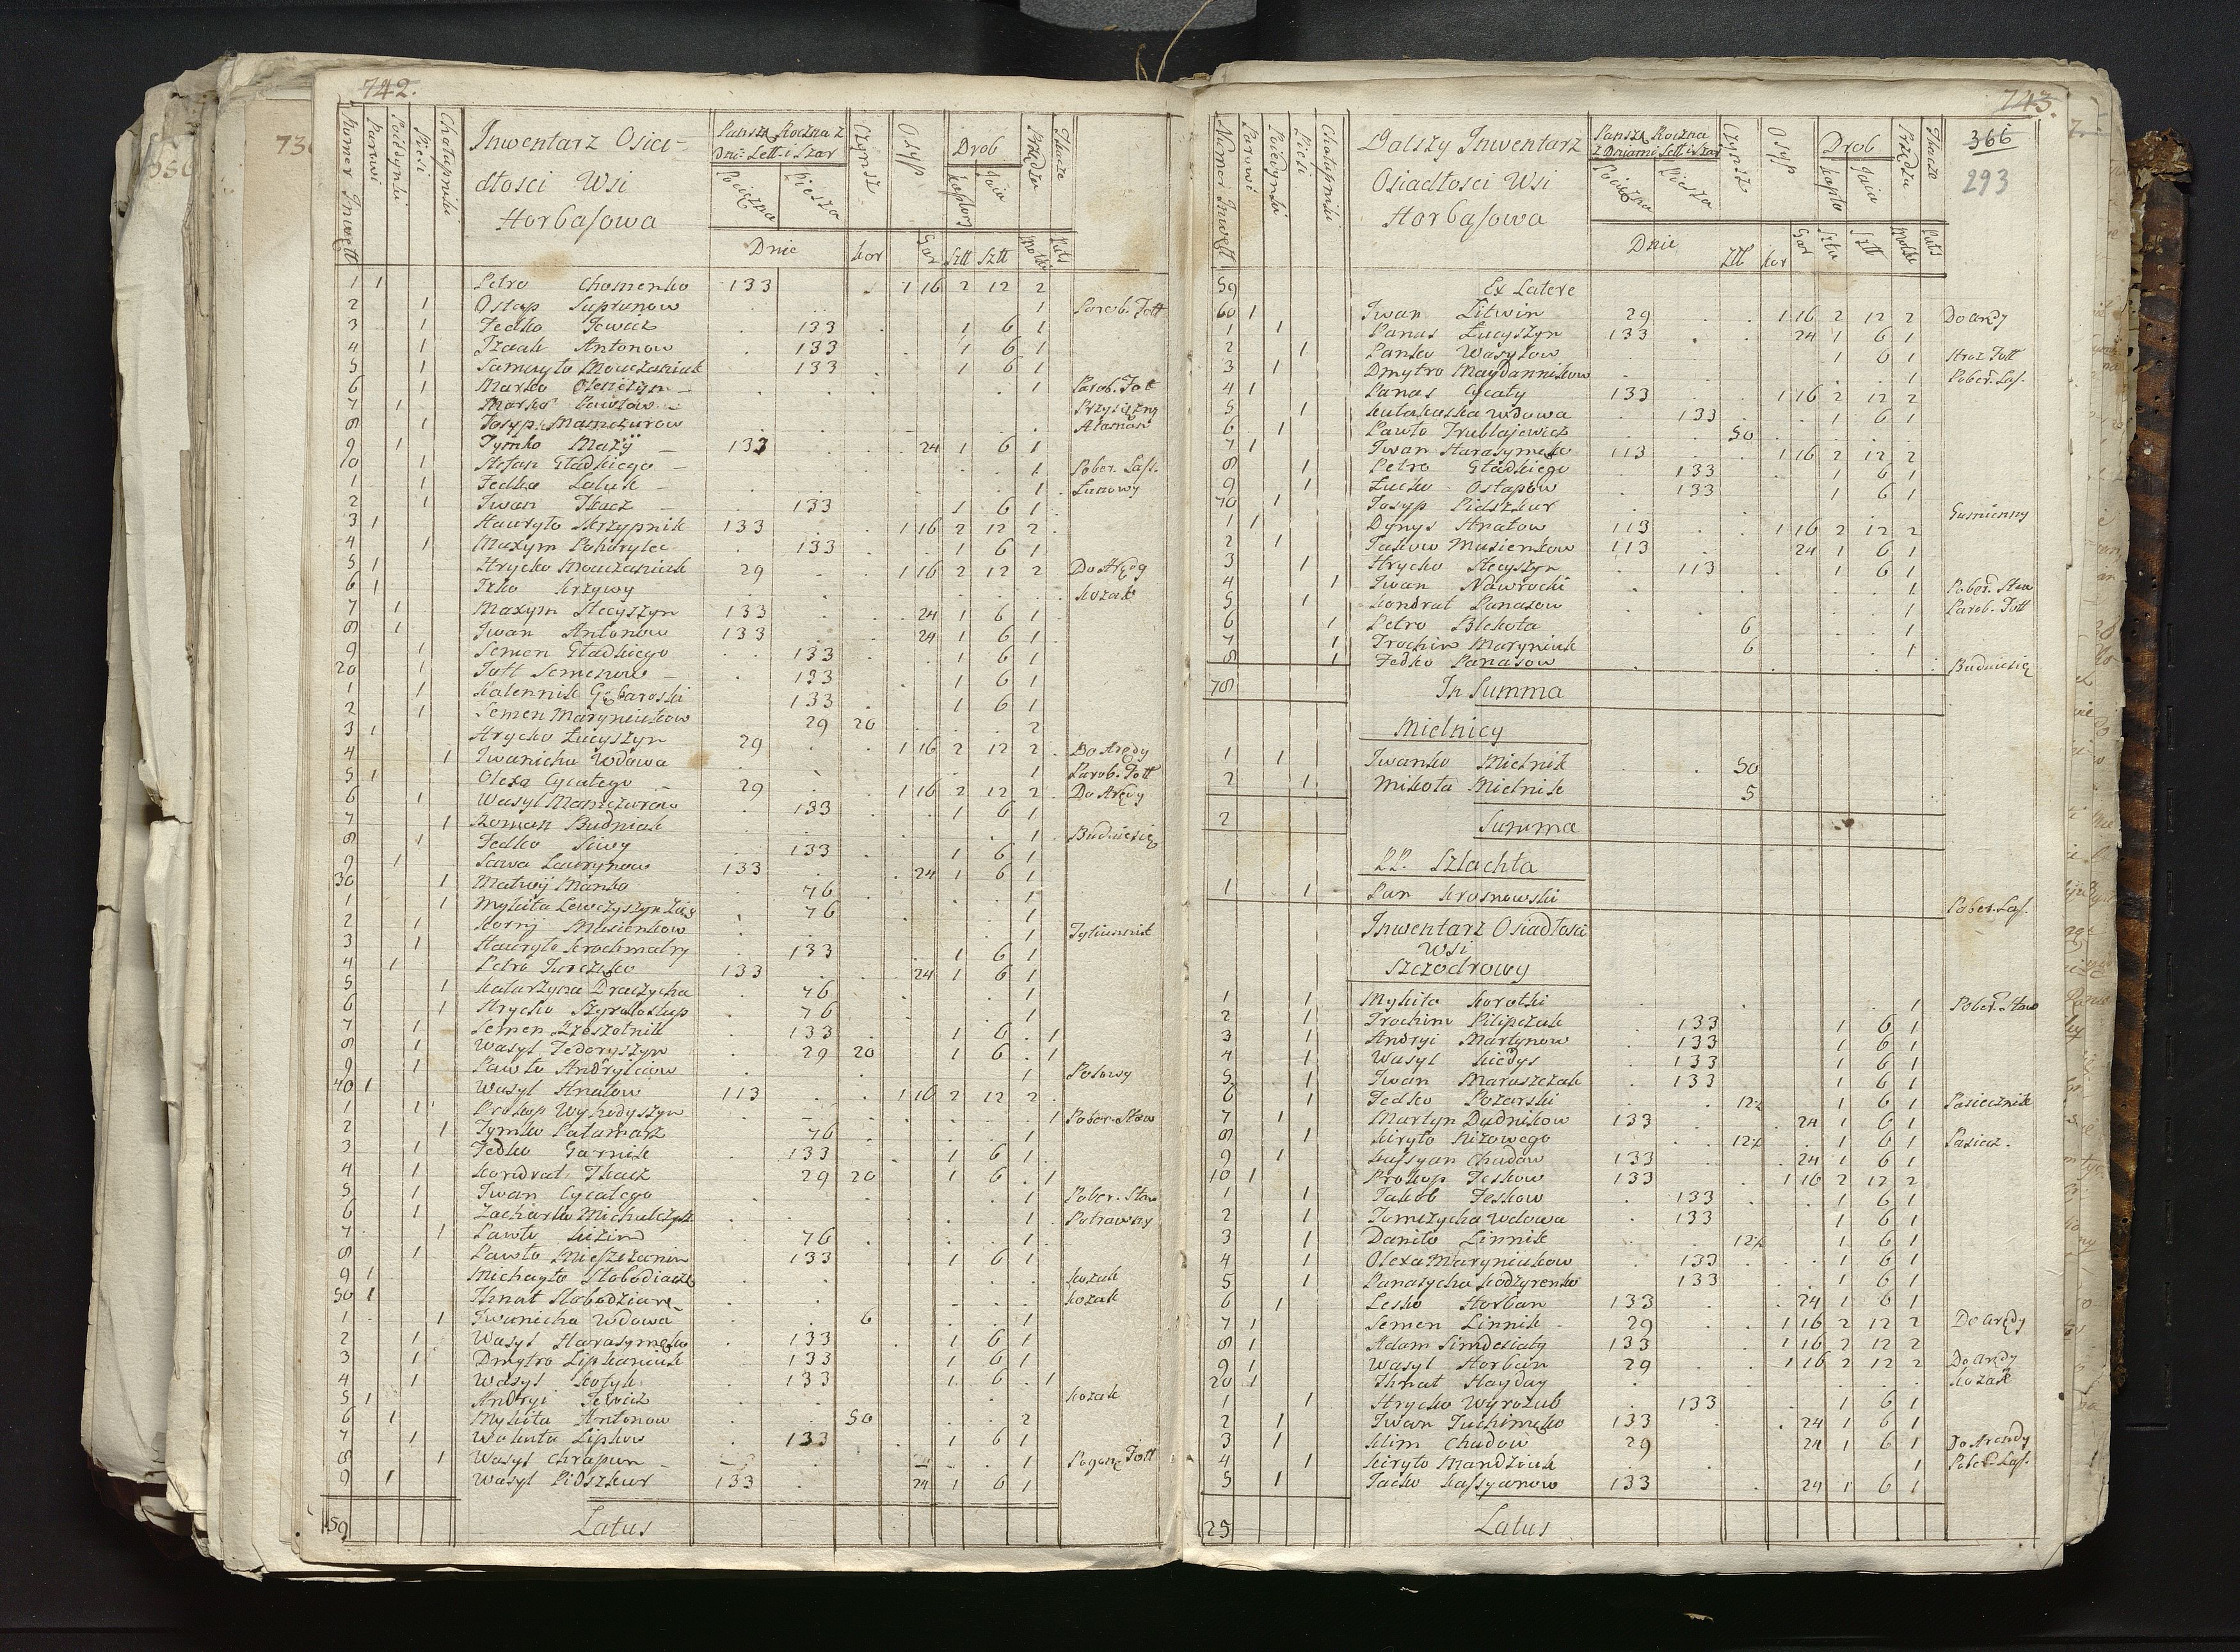 742.
Numer Inwentt
Parowi
Poiedynki
Piesi
Chałupniki
Inwentarz Osia-
dłosci Wsi
Horbasowa
Pansz: Roczna z
Dni: Lett. i Szar
Pociężna
Piesza
Dnie
Czynsz
kor
Osyp
Gar
Drob
kapłony
Jaia
Sztt
Sztt
Przędza
Motki
Tkacze
1 1 Petro Chomenko 133 1 16 2 12 2
2 1 Ostap Suprunow 1 Parob. Fott
3 1 Fedko Iewicz 133 1 6 1
4 1 Izaak Antonow 133 1 6 1
5 1 Samuyło Mouczaniuk 133 1 6 1
6 1 Marko Oleniczyn 1 Parob. Fott
7 1 Marko Pawłow Przysiężny
8 1 Josyp Mamczurow Ataman
9 1 Tymko Mazÿ 133 24 1 6 1
10 1 Stefan Gładkiego 1 Pober. Lass.
1 1 Fedko Laluk 1 Lanowy
2 1 Iwan Tkacz 133 1 6 1
3 1 Hauryło Skrzypnik 133 1 16 2 12 2
4 1 Maxym Pohorylec 133 1 6 1
5 1 Hrycko Mouczaniuk 29 1 16 2 12 2 Do Arędy
6 1 Isko Krzywy Kozak
7 1 Maxym Stecyszyn 133 24 1 6 1
8 1 Iwan Antonow 133 24 1 6 1
9 1 Semen Gładkiego 133 1 6 1
20 1 Jott Semenow 133 1 6 1
1 1 Kalennik Gębaroski 133 1 6 1
2 1 Semen Maryniukow 29 20 2
3 1 Hrycko Łucyszyn 29 1 16 2 12 2 Do Arędy
4 1 Iwanicha Wdowa 1 Parob. Fott
5 1 Olexa Cycałego 29 1 16 2 12 2 Do Arędy
6 1 Wasyl Mamczurow 133 1 6 1
7 1 Roman Budniak 1 Buduiesię
8 1 Fedko Siwy 133 1 6 1
9 1 Sawa Ławrynow 133 24 1 6 1
30 1 Matwij Manko 76 1
1 1 Mykita Lewczyszyn Zię 76 1
2 1 Kornij Musienkow 1 Tytiunnik
3 1 Hauryło Krochmalny 133 1 6 1
4 1 Petro Jurczyko 133 24 1 6 1
5 1 Katarzyna Draczycha 76 1
6 1 Hrycko Szyrokostup 76 1
7 1 Semen Rzeszotnik 133 1 6 1
8 1 Wasyl Fedoryszyn 29 20 1 6 1
9 1 Pawło Andryicow 1 Polowy
40 1 Wasyl Hnatow 113 1 16 2 12 2
1 1 Prokop Wyhodyszyn 1 Pober. Staw
2 1 Tymko Pałamarz 76 1
3 1 Fedko Garnik 133 1 6 1
4 1 Kondrat Tkacz 29 20 1 6 1
5 1 Iwan Cycałego 1 Pober. Staw
6 1 Zacharko Michalczyk 1 Potrawny
7 1 Pawło Kizim 76 1
8 1 Pawło Mieszczanin 133 1 6 1
9 1 Michayło Słobodian Kozak
50 1 Ihnat Słobodzian Kozak
1 1 Iwanicha Wdowa 6 1
2 1 Wasyl Harasymęko 133 1 6 1
3 1 Dmytro Lipkaniuk 133 1 6 1
4 1 Wasyl Kotyk 133 1 6 1
5 1 Andryi Iewicz Kozak
6 1 Mykita Antonow 50 2
7 1 Wakuta Lipkow 133 1 6 1
8 1 Wasyl Chrapun 1 Pogonę Fott
9 1 Wasyl Pidszkur 133 24 1 6 1
59 Latus
743.
366
293
Numer Inwett
Parowi
Poiedynki
Piesi
Chałupniki
Dalszy Inwentarz
Osiadłosci Wsi
Horbasowa
Pansz: Roczna
z Dniami Lett. i Szar
Pociężna
Piesza
Dnie
Czynsz
Ztt
kor
Osyp
Gar
Drob
kapło
Jaia
Sztu
Sztt
Przędza
Motki
Tkacze
59 Ex Latere
60 1 Iwan Litwin 29 1 16 2 12 2 Do aręd
1 1 Panas Łucyszyn 133 24 1 6 1
2 1 Panko Wasylow 1 6 1 Stroz Fott
3 1 Dmytro Maydannikow 1 Pober. Las.
4 1 Panas Cycały 133 1 16 2 12 2
5 1 Kułakoska Wdowa 133 1 6 1
6 1 Pawło Trublajewicz 50
7 1 Iwan Harasymęko 113 1 16 2 12 2
8 1 Petro Gładkiego 133 1 6 1
9 1 Łucko Ostapow 133 1 6 1
70 1 Josyp Pidszkur Gumienny
1 1 Dynys Hnatow 113 1 16 2 12 2
2 1 Jakow Musienkow 113 24 1 6 1
3 1 Hrycko Stecyszyn 113 1 6 1
4 1 Iwan Nawrocki 1 Pober. Staw
5 1 Kondrat Panasow 1 Parob. Fott
6 1 Petro Blekota 6 1
7 1 Trochim Maryniuk 6 1
8 1 Fedko Panasow Buduiesię
78 In Summa
Mielnicy
1 1 Iwanko Mielnik 50
2 1 Mikoła Mielnik 5
2 Summa
PP. Szlachta
1 1 Pan Krosnowski Pober. Las.
Inwentarz Osiadłosci
Wsi
Szczodrowy
1 1 Mykita Korotki 1 Pober. Staw
2 1 Trochim Pilipczuk 133 1 6 1
3 1 Andryi Martynow 133 1 6 1
4 1 Wasyl Kiedys 133 1 6 1
5 1 Iwan Maruszczak 133 1 6 1
6 1 Fedko Pozarski 12 1 6 1 Pasiecznik
7 1 Martyn Dudnikow 133 24 1 6 1
8 1 Kiryło Nizowego 12 1 6 1 Pasiecz.
9 1 Kassyan Chudow 133 24 1 6 1
10 1 Prokop Feskow 133 1 16 2 12 2
1 1 Jakob Feskow 133 1 6 1
2 1 Tomczycha Wdowa 133 1 6 1
3 1 Daniło Linnik 12 1 6 1
4 1 Olexa Maryniukow 133 1 6 1
5 1 Panasycha Kodzyrenko 133 1 6 1
6 1 Lesko Horban 133 24 1 6 1
7 1 Semen Linnik 29 1 16 2 12 2 Do arędy
8 1 Adam Simdesiaty 133 1 16 2 12 2
9 1 Wasyl Horban 29 1 16 2 12 2 Do arędy
20 1 Ihnat Hayday Kozak
1 1 Hrycko Wyrozub 133 1 6 1
2 1 Iwan Juchimęko 133 24 1 6 1
3 1 Klim Chudow 29 24 1 6 1 Do Arendy
4 1 Kiryło Mandziuk 1 Pober. Las.
5 1 Jacko Kassyanow 133 24 1 6 1
25 Latus